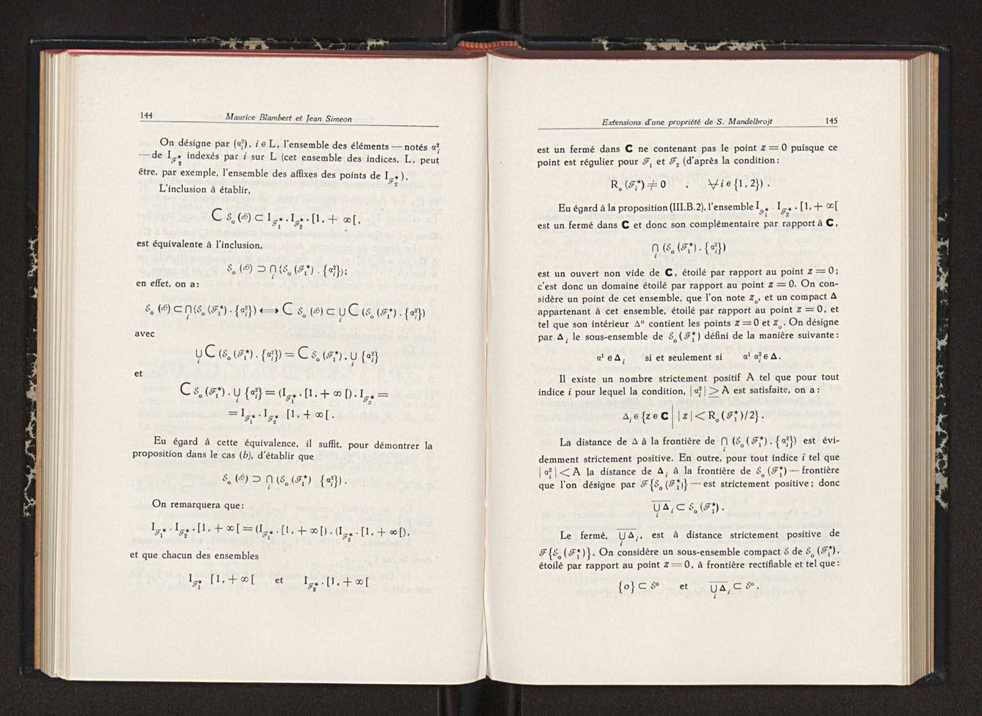 144
Maurice Blambert et Jean Simeon
On désigne par (α²ᵢ), i ∈ L, l'ensemble des éléments — notés α²ᵢ
— de I_{ℱ₂*} indexés par i sur L (cet ensemble des indices, L, peut
être, par exemple, l'ensemble des affixes des points de I_{ℱ₂*}).
L'inclusion à établir,
C ℰₒ(𝒮) ⊂ I_{ℱ₁*} . I_{ℱ₂*} . [1, + ∞[,
est équivalente à l'inclusion,
ℰₒ(𝒮) ⊃ ⋂ᵢ (ℰₒ(ℱ₁*) . {α²ᵢ});
en effet, on a:
ℰₒ(𝒮) ⊂ ⋂ᵢ (ℰₒ(ℱ₁*) . {α²ᵢ}) ⟺ C ℰₒ(𝒮) ⊂ ⋃ᵢ C (ℰₒ(ℱ₁*) . {α²ᵢ})
avec
⋃ᵢ C (ℰₒ(ℱ₁*) . {α²ᵢ}) = C ℰₒ(ℱ₁*) . ⋃ᵢ {α²ᵢ}
et
C ℰₒ(ℱ₁*) . ⋃ᵢ {α²ᵢ} = (I_{ℱ₁*} . [1, + ∞[) . I_{ℱ₂*} =
= I_{ℱ₁*} . I_{ℱ₂*} [1, + ∞[.
Eu égard à cette équivalence, il suffit, pour démontrer la
proposition dans le cas (b), d'établir que
ℰₒ(𝒮) ⊃ ⋂ᵢ (ℰₒ(ℱ₁*) {α²ᵢ}).
On remarquera que:
I_{ℱ₁*} . I_{ℱ₂*} . [1, + ∞[ = (I_{ℱ₁*} . [1, + ∞[) . (I_{ℱ₂*} . [1, + ∞[),
et que chacun des ensembles
I_{ℱ₁*} [1, + ∞[ et I_{ℱ₂*} . [1, + ∞[
Extensions d'une propriété de S. Mandelbrojt
145
est un fermé dans C ne contenant pas le point z = 0 puisque ce
point est régulier pour ℱ₁ et ℱ₂ (d'après la condition:
Rₒ(ℱᵢ*) ≠ 0 , ∀ i ∈ {1, 2}) .
Eu égard à la proposition (III.B.2), l'ensemble I_{ℱ₁*} . I_{ℱ₂*} . [1, + ∞[
est un fermé dans C et donc son complémentaire par rapport à C,
⋂ᵢ (ℰₒ(ℱ₁*) . {α²ᵢ})
est un ouvert non vide de C, étoilé par rapport au point z = 0;
c'est donc un domaine étoilé par rapport au point z = 0. On con-
sidère un point de cet ensemble, que l'on note zₒ, et un compact Δ
appartenant à cet ensemble, étoilé par rapport au point z = 0, et
tel que son intérieur Δᵒ contient les points z = 0 et zₒ. On désigne
par Δᵢ le sous-ensemble de ℰₒ(ℱ₁*) défini de la manière suivante:
α¹ ∈ Δᵢ si et seulement si α¹ α²ᵢ ∈ Δ.
Il existe un nombre strictement positif A tel que pour tout
indice i pour lequel la condition, |α²ᵢ| ≥ A est satisfaite, on a:
Δᵢ ∈ {z ∈ C | |z| < Rₒ(ℱ₁*)/2}.
La distance de Δ à la frontière de ⋂ᵢ (ℰₒ(ℱ₁*) . {α²ᵢ}) est évi-
demment strictement positive. En outre, pour tout indice i tel que
|α²ᵢ| < A la distance de Δᵢ à la frontière de ℰₒ(ℱ₁*) — frontière
que l'on désigne par ℱ{ℰₒ(ℱ₁*)} — est strictement positive; donc
⋃ᵢ Δ̅ᵢ ⊂ ℰₒ(ℱ₁*).
Le fermé, ⋃ᵢ Δ̅ᵢ, est à distance strictement positive de
ℱ{ℰₒ(ℱ₁*)}. On considère un sous-ensemble compact ℰ de ℰₒ(ℱ₁*),
étoilé par rapport au point z = 0, à frontière rectifiable et tel que:
{o} ⊂ ℰᵒ et ⋃ᵢ Δ̅ᵢ ⊂ ℰᵒ.